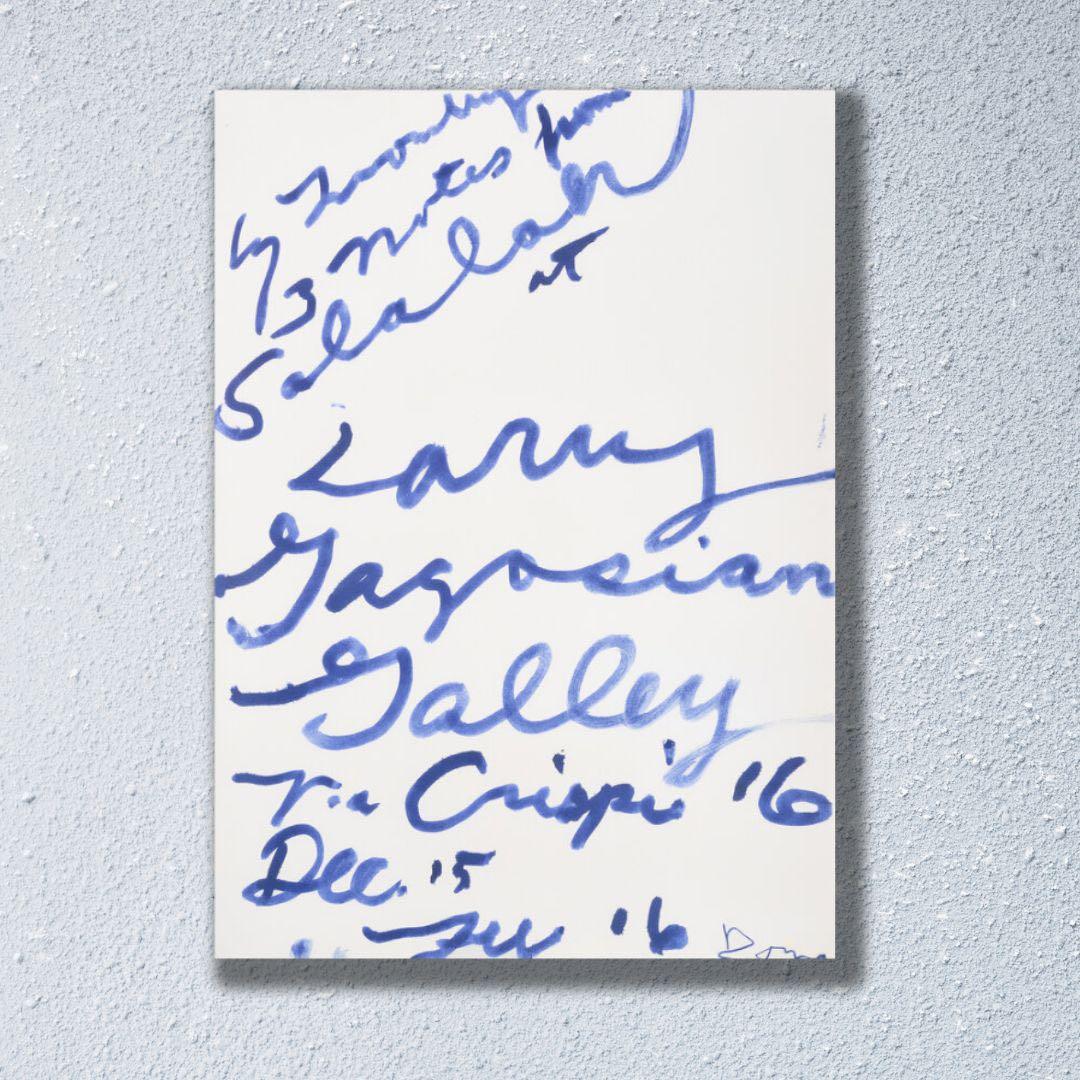 Cy Twombly
3 Notes from
Salalah
at
Larry
Gagosian
Galley
Via Crispi '16
Dec. '15
'16